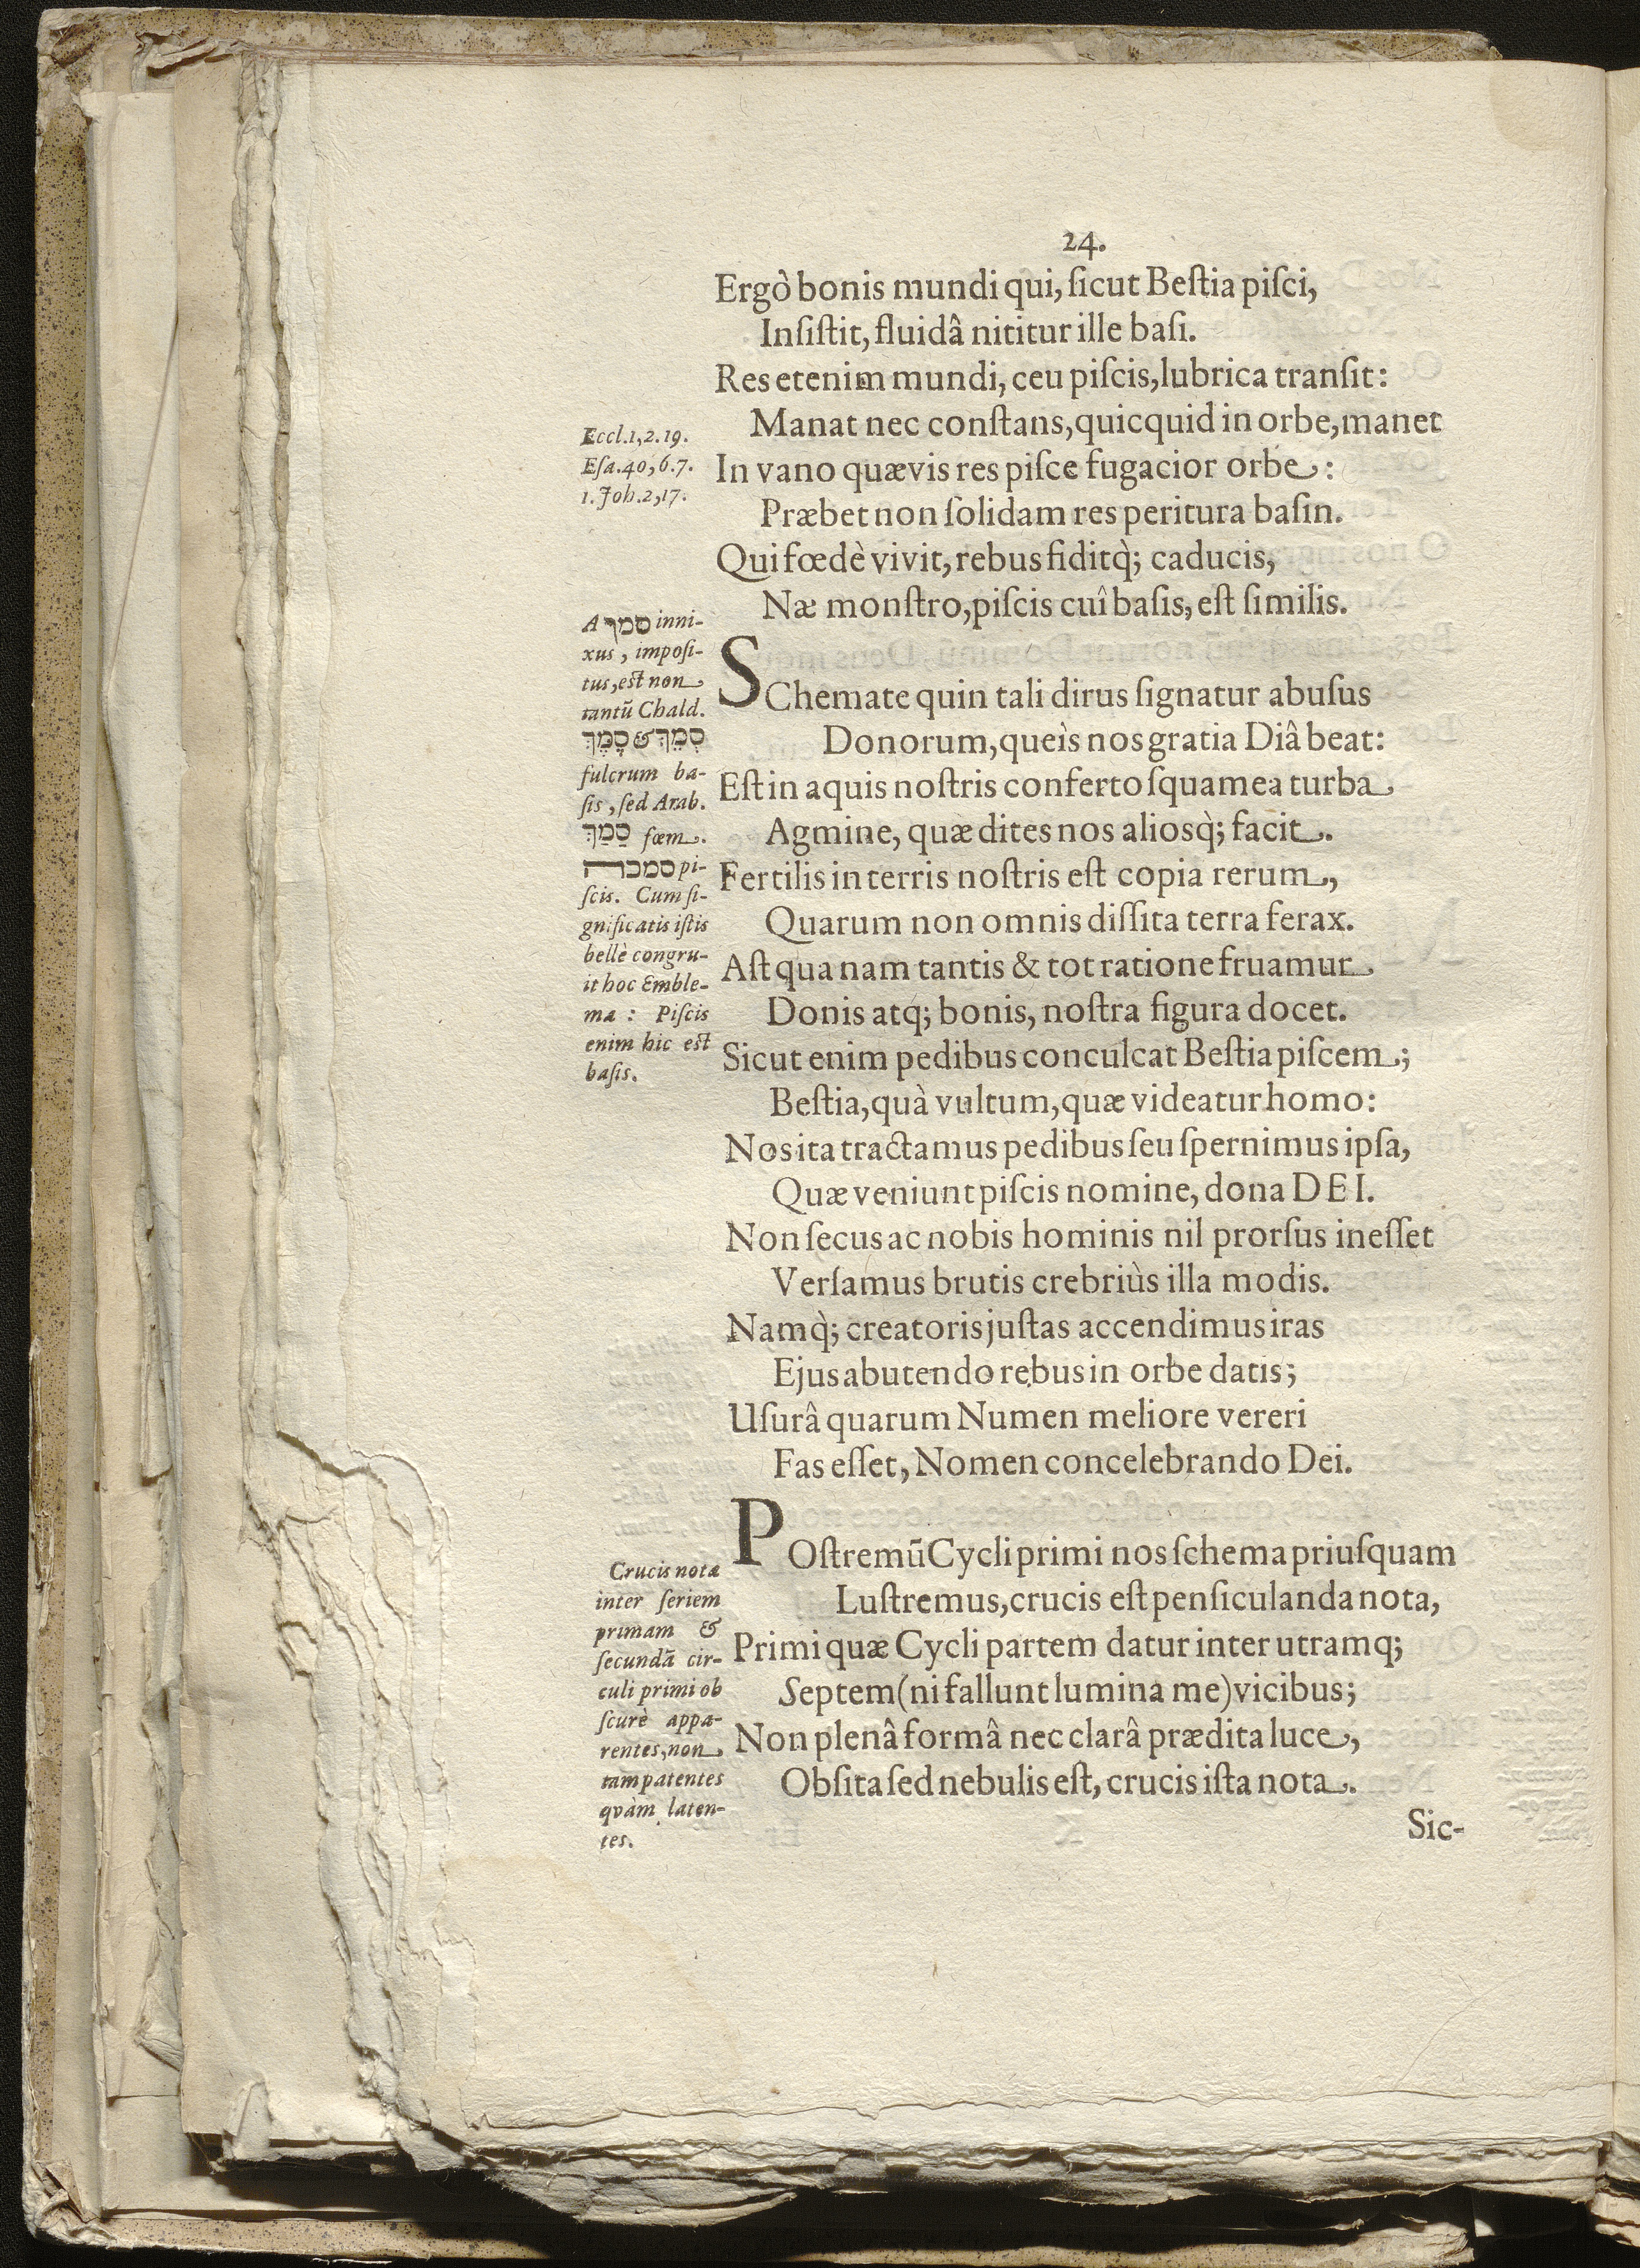 24.
Ergò bonis mundi qui, ſicut Beſtia piſci,
Inſiſtit, fluidâ nititur ille baſi.
Res etenim mundi, ceu piſcis, lubrica tranſit:
Manat nec conſtans, quicquid in orbe, manet
In vano quævis res piſce fugacior orbe:
Præbet non ſolidam res peritura baſin.
Qui fœdè vivit, rebus fiditq̀; caducis,
Næ monſtro, piſcis cuî baſis, eſt ſimilis.
SChemate quin tali dirus ſignatur abuſus
Donorum, queìs nos gratia Diâ beat:
Eſt in aquis noſtris conferto ſquamea turba
Agmine, quæ dites nos aliosq̀; facit.
Fertilis in terris noſtris eſt copia rerum,
Quarum non omnis diſſita terra ferax.
Aſt qua nam tantis & tot ratione fruamur
Donis atq́; bonis, noſtra figura docet.
Sicut enim pedibus conculcat Beſtia piſcem;
Beſtia, quà vultum, quæ videatur homo:
Nos ita tractamus pedibus ſeu ſpernimus ipſa,
Quæ veniunt piſcis nomine, dona DEI.
Non ſecus ac nobis hominis nil prorſus ineſſet
Verſamus brutis crebriùs illa modis.
Namq̀; creatoris juſtas accendimus iras
Ejus abutendo rebus in orbe datis;
Uſurâ quarum Numen meliore vereri
Fas eſſet, Nomen concelebrando Dei.
POſtremū Cycli primi nos ſchema priuſquam
Luſtremus, crucis eſt penſiculanda nota,
Primi quæ Cycli partem datur inter utramq;
Septem (ni fallunt lumina me) vicibus;
Non plenâ formâ nec clarâ prædita luce,
Obſita ſed nebulis eſt, crucis iſta nota.
Sic-
Eccl.1,2.19.
Eſa.40,6.7.
1.Joh.2,17.
A סמך inni-
xus, impoſi-
tus, eſt non
tantū Chald.
סְמֵךְ & סָמֶךְ
fulcrum ba-
ſis, ſed Arab.
סַמַךְ fœm.
סמכה pi-
ſcis. Cum ſi-
gnificatis iſtis
bellè congru-
it hoc Emble-
ma: Piſcis
enim hic eſt
baſis.
Crucis notæ
inter ſeriem
primam &
ſecundā cir-
culi primi ob
ſcurè appa-
rentes, non
tam patentes
qvàm laten-
tes.